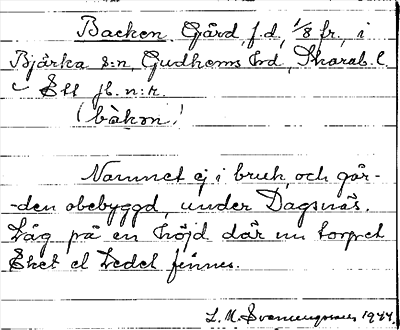 Backen, Gård, f.d. 1/8 fr., i
Bjärka s:n, Gudhems hd, Skarab. l.
Ett jb. n:r.
(bàkən)
Namnet ej i bruk, och går-
-den obebyggd, under Dagsnäs.
Låg på en höjd där nu torpet
Eket el. Ledet finnes.
L. M. Svenungsson 1944.